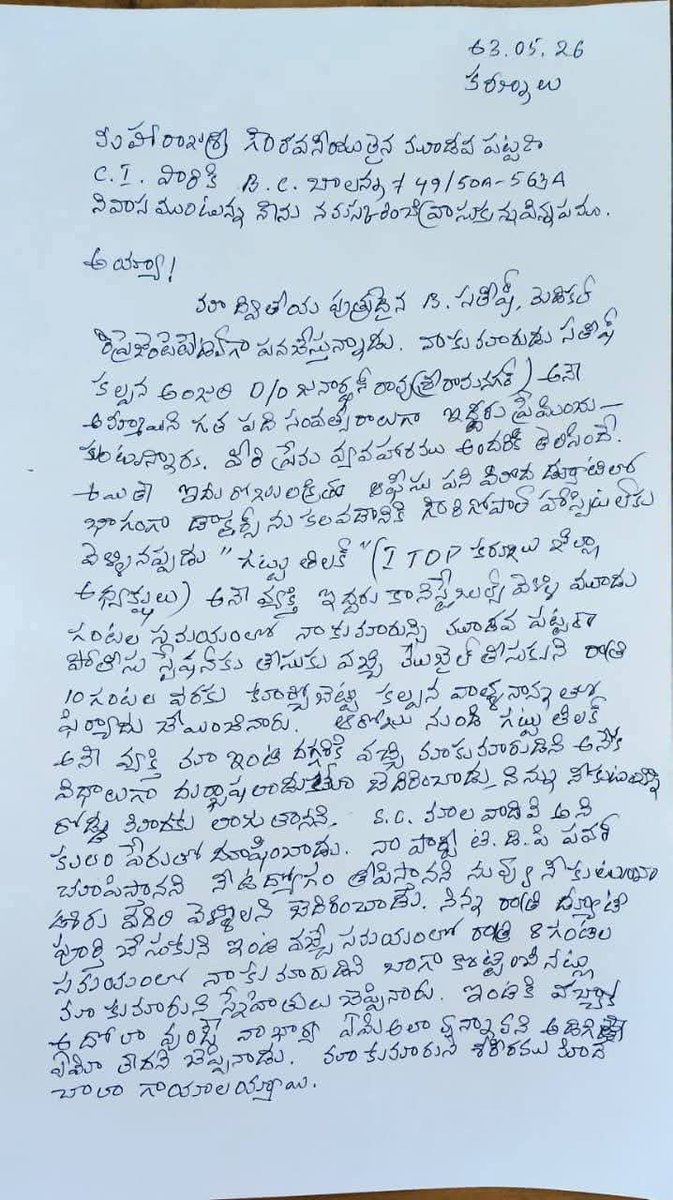 03.05.26
కర్నూలు
మహారాజశ్రీ గౌరవనీయులైన మూడవ పట్టణ
C.I. వారికి B.C. బాలన్న 49/50A-563A
నివాసముంటున్న నేను నమస్కరించి వ్రాసుకున్న విన్నపము.
అయ్యా!
మా ద్వితీయ పుత్రుడైన B. సతీష్, మెడికల్
రిప్రజెంటేటివ్‌గా పనిచేస్తున్నాడు. నా కుమారుడు సతీష్
కల్పన అంజలి D/o జనార్ధన్ రావు (శ్రీరామనగర్) అనే
అమ్మాయిని గత పది సంవత్సరాలుగా ఇద్దరు ప్రేమించు-
కుంటున్నారు. వీరి ప్రేమ వ్యవహారము అందరికీ తెలిసిందే.
అయితే ఇదు రోజుల క్రితం ఆఫీసు పని మీద డ్యూటీలో
భాగంగా డాక్టర్స్ ను కలవడానికి గౌరి గోపాల్ హాస్పిటల్‌కు
వెళ్ళినప్పుడు "గట్టు తిలక్" (I TDP కర్నూలు జిల్లా
అధ్యక్షులు) అనే వ్యక్తి ఇద్దరు కానిస్టేబుల్స్ వెళ్ళి మూడు
గంటల సమయంలో నా కుమారున్ని మూడవ పట్టణ
పోలీసు స్టేషన్‌కు తీసుకు వచ్చి మొబైల్ తీసుకుని రాత్రి
10 గంటల వరకు కూర్చోబెట్టి కల్పన వాళ్ళ నాన్నతో
ఫిర్యాదు చేయించినారు. ఆరోజు నుండి గట్టు తిలక్
అనే వ్యక్తి మా ఇంటి దగ్గరికి వచ్చి మా కుమారుడిని అనేక
విధాలుగా దుర్భాషలాడుతూ బెదిరించాడు. నిన్ను నీ కుటుంబాన్ని
రోడ్డు కిలాగుతానని. S.C. మాల వాడివి అని
కులం పేరుతో దూషించాడు. నా పార్టీ టి.డి.పి పవర్
చూపిస్తానని నీ ఉద్యోగం తీపిస్తానని నువ్వు నీ కుటుంబం
ఊరు వదిలి వెళ్ళాలని బెదిరించాడు. నిన్న రాత్రి డ్యూటీ
పూర్తి చేసుకుని ఇంటి వచ్చే సమయంలో రాత్రి 8 గంటల
సమయంలో నా కుమారుడిని బాగా కొట్టినట్లు
మా కుమారుని స్నేహితులు చెప్పినారు. ఇంటికి వచ్చాక
అదోలా వుంటే నా భార్య ఏమి అలా వున్నావని అడిగితే
ఏమీ లేదని చెప్పినాడు. మా కుమారుని శరీరము మీద
చాలా గాయాలయ్యాయి.